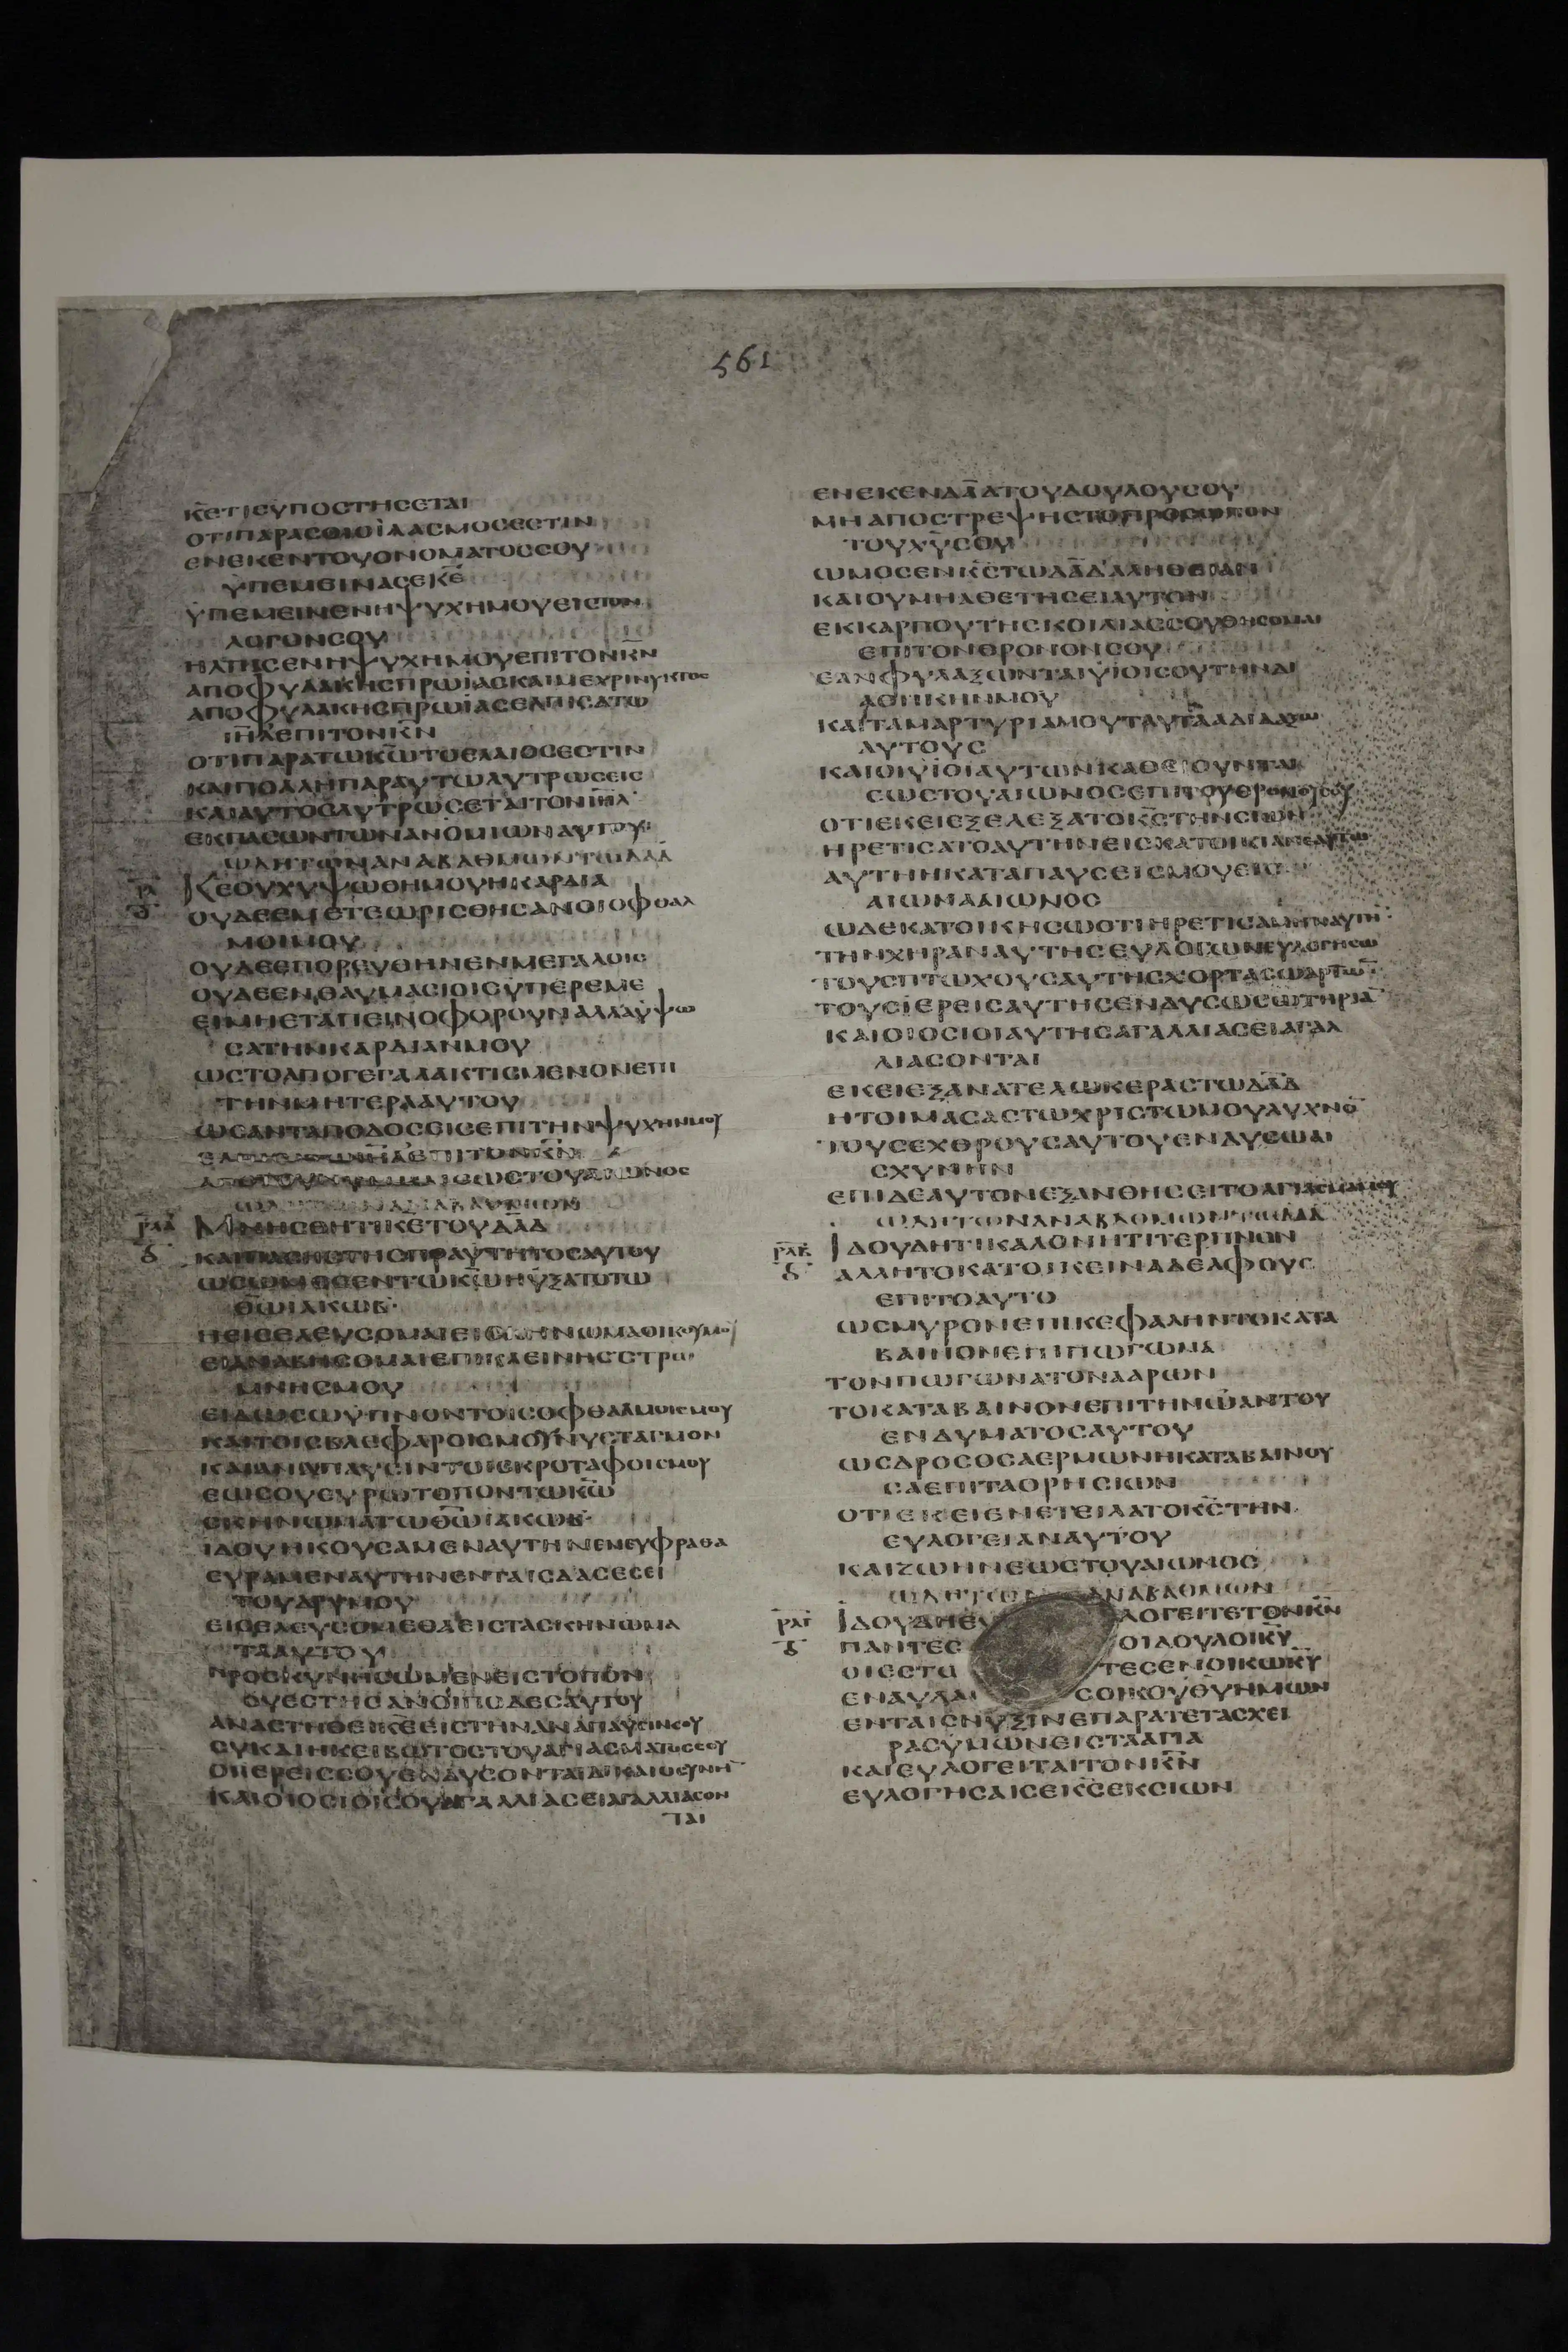 561
κ̅ε̅τιϲυποϲτηϲεται
οτιπαραϲοιοϊλαϲμοϲεϲτιν
ενεκεντουονοματοϲϲου
ϋπεμειναϲεκ̅ε̅
ϋπεμεινενηψυχημουειϲτον
λογονϲου
ηλπιϲενηψυχημουεπιτονκ̅ν̅
αποφυλακηϲπρωϊαϲκαιμεχρινυκτοϲ
αποφυλακηϲπρωϊαϲελπιϲατω
ι̅η̅λ̅επιτονκ̅ν̅
οτιπαρατωκ̅ω̅τοελαιοϲεϲτιν
καιπολληπαραυτωλυτρωϲειϲ
καιαυτοϲλυτρωϲεταιτονι̅η̅λ̅
εκπαϲωντωνανομιωναυτου
ωδητωναναβαθμωντωδ̅α̅δ̅
ρ̅λ̅ Κ̅ε̅ουχυψωθημουηκαρδια
ουδεεμετεωριϲθηϲανοιοφθαλ
μοιμου
ουδεεπορευθηνενμεγαλοιϲ
ουδεενθαυμαϲιοιϲυπερεμε
ειμηεταπεινοφρουναλλαϋψω
ϲατηνκαρδιανμου
ωϲτοαπογεγαλακτιϲμενονεπι
τηνμητερααυτου
ωϲανταποδοϲειϲεπιτηνψυχηνμου
ι̅η̅λ̅επιτονκ̅ν̅
εωϲτουαιωνοϲ
ρ̅λ̅α̅ Μνηϲθητικ̅ε̅τουδ̅α̅δ̅
καιπαϲηϲτηϲπραυτητοϲαυτου
ωϲωμοϲεντωκ̅ω̅ηυξατοτω
θ̅ω̅ϊακωβ
ηειϲελευϲομαιειϲϲκηνωμαοικουμου
ειαναβηϲομαιεπικλεινηϲϲτρω
μνηϲμου
ειδωϲωϋπνοντοιϲοφθαλμοιϲμου
καιτοιϲβλεφαροιϲμουνυϲταγμον
καιαναπαυϲιντοιϲκροταφοιϲμου
εωϲουευρωτοποντωκ̅ω̅
ϲκηνωματωθ̅ω̅ϊακωβ
ιδουηκουϲαμεναυτηνενευφραθα
ευραμεναυτηνενταιϲδαϲεϲει
τουδρυμου
ειϲελευϲομεθαειϲταϲκηνωμα
τααυτου
προϲκυνηϲωμενειϲτοπον
ουεϲτηϲανοιποδεϲαυτου
αναϲτηθεικ̅ε̅ειϲτηναναπαυϲινϲου
ϲυκαιηκειβωτοϲτουαγιαϲματοϲϲου
οιιερειϲϲουενδυϲονταιδικαιοϲυνη̅
καιοιοϲιοιϲουαγαλλιαϲειαγαλλιαϲον
ται
ενεκενδ̅α̅δ̅τουδουλουϲου
μηαποϲτρεψηϲτοπροϲωπον
τουχ̅υ̅ϲου
ωμοϲενκ̅ϲ̅τωδ̅α̅δ̅αληθειαν
καιουμηαθετηϲειαυτον
εκκαρπουτηϲκοιλιαϲϲουθηϲομαι
επιτονθρονονϲου
εανφυλαξωνταιϋιοιϲουτηνδι
αθηκηνμου
καιταμαρτυριαμουταυταδιδαξω
αυτουϲ
καιοιϋιοιαυτωνκαθειουνται
εωϲτουαιωνοϲεπιτουθρονουϲου
οτιεκειεξελεξατοκ̅ϲ̅τηνϲιων
ηρετιϲατοαυτηνειϲκατοικιανεαυτω
αυτηηκαταπαυϲειϲμουειϲ
αιωνααιωνοϲ
ωδεκατοικηϲωοτιηρετιϲαμηναυτη̅
τηνχηραναυτηϲευλογωνευλογηϲω
τουϲπτωχουϲαυτηϲχορταϲωαρτω̅
τουϲϊερειϲαυτηϲενδυϲωϲωτηρια̅
καιοιοϲιοιαυτηϲαγαλλιαϲειαγαλ
λιαϲονται
εκειεξανατελωκεραϲτωδ̅α̅δ̅
ητοιμαϲαϲτωχριϲτωμουλυχνο̅
τουϲεχθρουϲαυτουενδυϲωαι
ϲχυνην
επιδεαυτονεξανθηϲειτοαγιαϲμαμου
ωδητωναναβαθμωντωδ̅α̅δ̅
ρ̅λ̅β̅ Ιδουδητικαλονητιτερπνον
αλλητοκατοικειναδελφουϲ
επιτοαυτο
ωϲμυρονεπικεφαληντοκατα
βαινονεπιπωγωνα
τονπωγωνατονααρων
τοκαταβαινονεπιτηνωαντου
ενδυματοϲαυτου
ωϲδροϲοϲαερμωνηκαταβαινου
ϲαεπιταορηϲιων
οτιεκειενετειλατοκ̅ϲ̅την
ευλογειαναυτου
καιζωηνεωϲτουαιωνοϲ
ωδητων αναβαθμων
ρ̅λ̅γ̅ Ιδουδηευ λογειτετονκ̅ν̅
παντεϲ οιδουλοικ̅υ̅
οιεϲτω τεϲενοικωκ̅υ̅
εναυλαι ϲοικουθ̅υ̅ημων
ενταιϲνυξινεπαρατεταϲχει
ραϲυμωνειϲτααγια
καιευλογειταιτονκ̅ν̅
ευλογηϲαιϲεκ̅ϲ̅εκϲιων